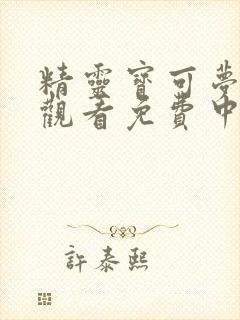 精靈寶可夢
觀看免費中
許泰熙